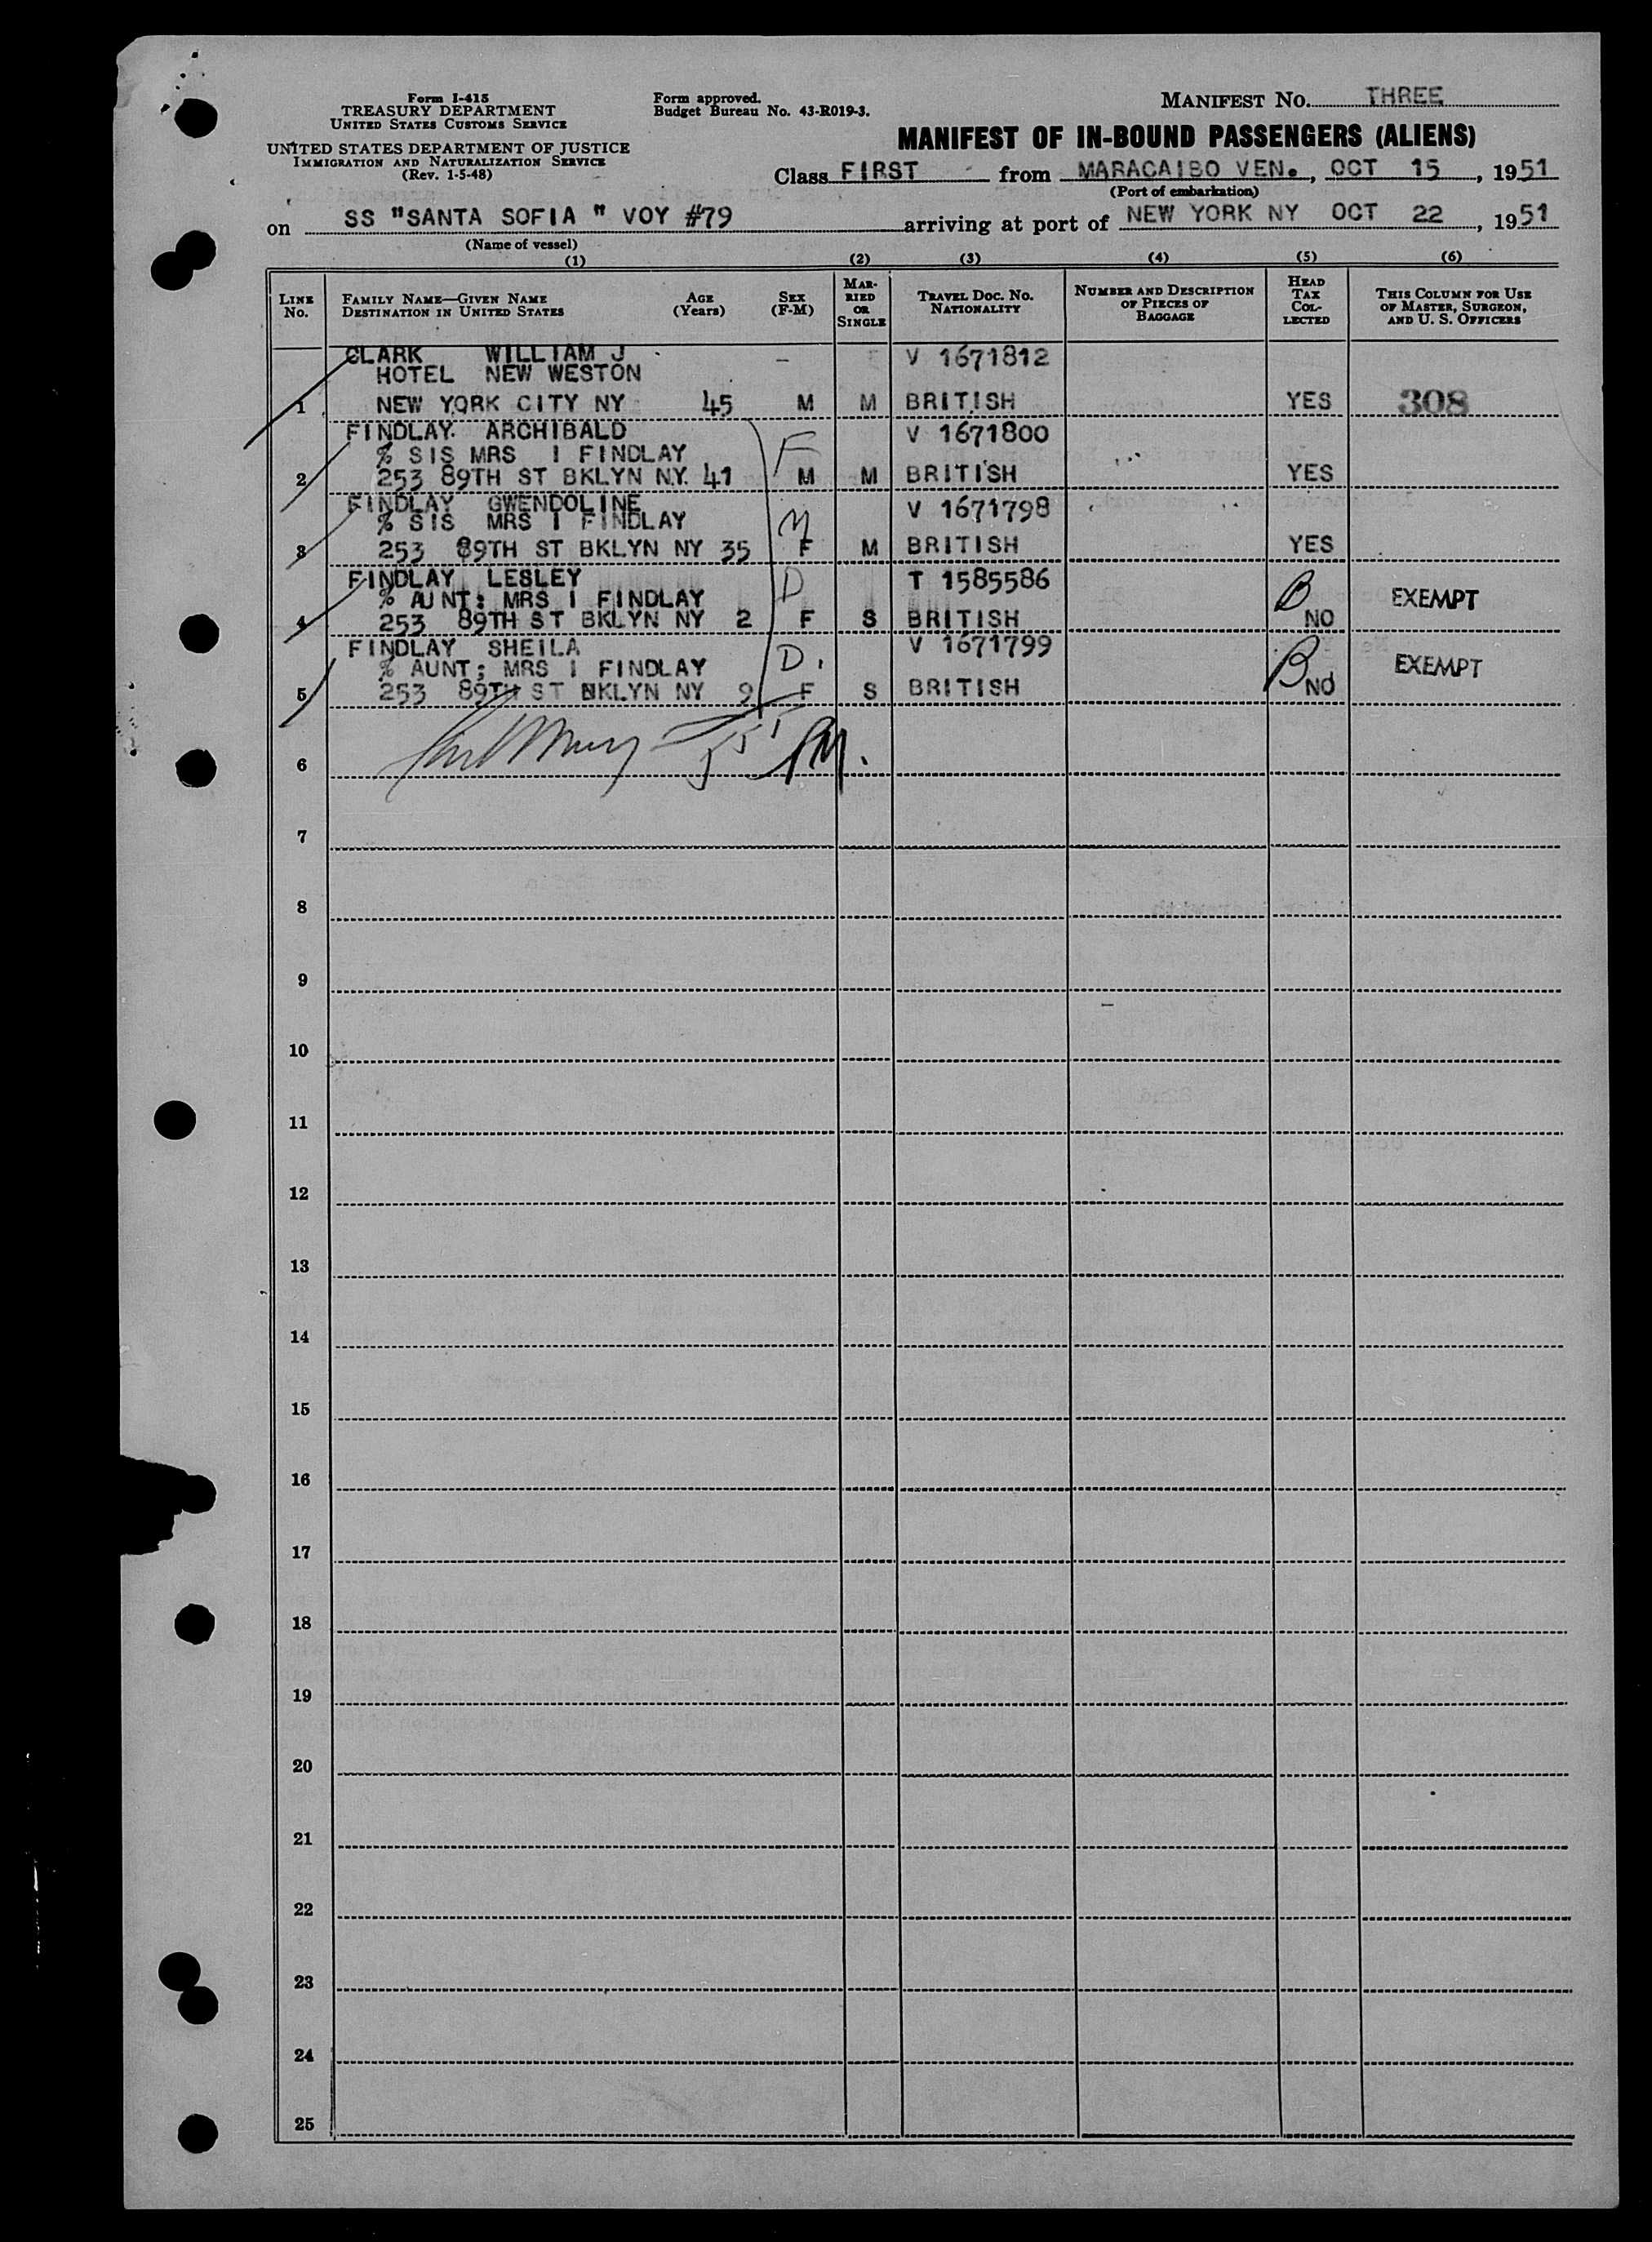 Form I-415
TREASURY DEPARTMENT
UNITED STATES CUSTOMS SERVICE
UNITED STATES DEPARTMENT OF JUSTICE
IMMIGRATION AND NATURALIZATION SERVICE
(Rev. 1-5-48)
Form approved.
Budget Bureau No. 43-R019-3.
MANIFEST NO. THREE
MANIFEST OF IN-BOUND PASSENGERS (ALIENS)
Class FIRST from MARACAIBO VEN., OCT 15, 1951
(Port of embarkation)
on SS "SANTA SOFIA " VOY #79 arriving at port of NEW YORK NY OCT 22, 1951
(Name of vessel)
(1) (2) (3) (4) (5) (6)
LINE No.
FAMILY NAME—GIVEN NAME
DESTINATION IN UNITED STATES
AGE
(Years)
SEX
(F-M)
MAR-
RIED
OR
SINGLE
TRAVEL DOC. NO.
NATIONALITY
NUMBER AND DESCRIPTION
OF PIECES OF
BAGGAGE
HEAD
TAX
COL-
LECTED
THIS COLUMN FOR USE
OF MASTER, SURGEON,
AND U. S. OFFICERS
CLARK WILLIAM J V 1671812
HOTEL NEW WESTON
1 NEW YORK CITY NY 45 M M BRITISH YES 308
FINDLAY ARCHIBALD F V 1671800
% SIS MRS I FINDLAY
2 253 89TH ST BKLYN N.Y. 41 M M BRITISH YES
FINDLAY GWENDOLINE V 1671798
% SIS MRS I FINDLAY M
3 253 89TH ST BKLYN NY 35 F M BRITISH YES
FINDLAY LESLEY D T 1585586
% AUNT: MRS I FINDLAY B EXEMPT
4 253 89TH ST BKLYN NY 2 F S BRITISH NO
FINDLAY SHEILA D. V 1671799
% AUNT; MRS I FINDLAY B EXEMPT
5 253 89TH ST BKLYN NY 9 F S BRITISH NO
6
7
8
9
10
11
12
13
14
15
16
17
18
19
20
21
22
23
24
25